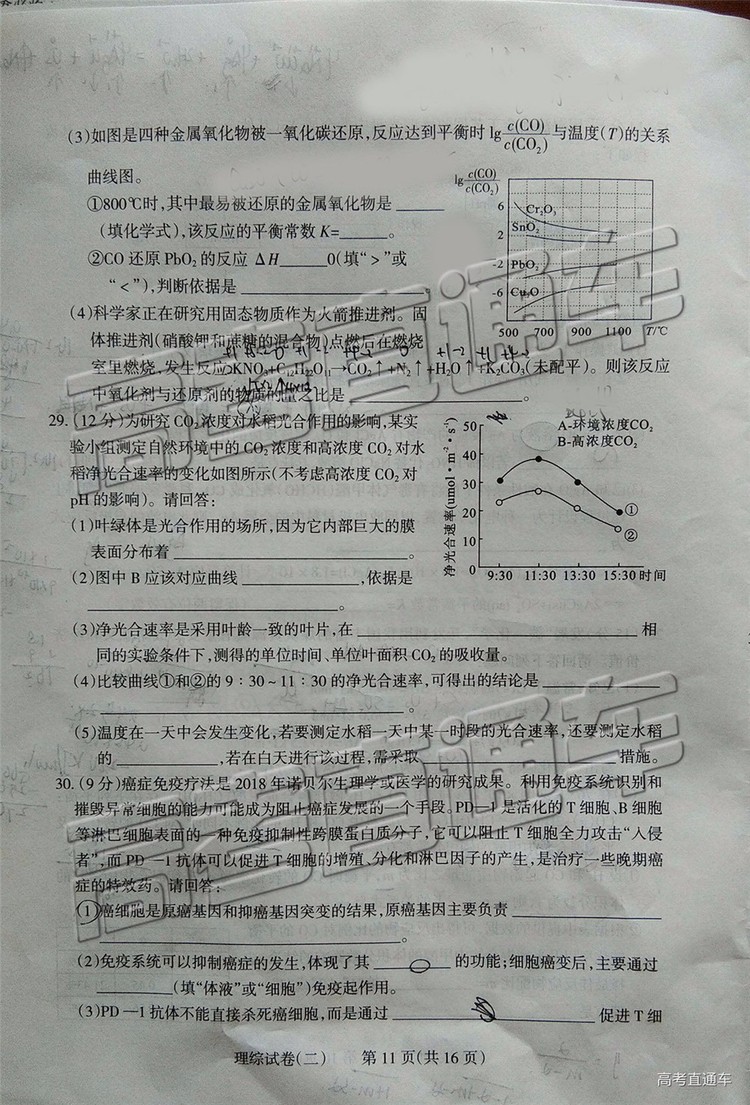 (3)如图是四种金属氧化物被一氧化碳还原,反应达到平衡时 lg c(CO)/c(CO₂) 与温度(T)的关系
曲线图。
①800℃时,其中最易被还原的金属氧化物是 ______
(填化学式),该反应的平衡常数 K=______。
②CO 还原 PbO₂ 的反应 ΔH______0(填“>”或
“<”),判断依据是 ______。
lg c(CO)/c(CO₂)
6
2
-2
-6
Cr₂O₃
SnO₂
PbO₂
Cu₂O
500 700 900 1100 T/℃
(4)科学家正在研究用固态物质作为火箭推进剂。固
体推进剂(硝酸钾和蔗糖的混合物)点燃后在燃烧
室里燃烧,发生反应KNO₃+C₁₂H₂₂O₁₁→CO₂↑+N₂↑+H₂O↑+K₂CO₃(未配平)。则该反应
中氧化剂与还原剂的物质的量之比是 ______。
29.(12 分)为研究 CO₂ 浓度对水稻光合作用的影响,某实
验小组测定自然环境中的 CO₂ 浓度和高浓度 CO₂ 对水
稻净光合速率的变化如图所示(不考虑高浓度 CO₂ 对
pH 的影响)。请回答:
(1)叶绿体是光合作用的场所,因为它内部巨大的膜
表面分布着 ______。
(2)图中 B 应该对应曲线 ______,依据是
______。
净光合速率(umol·m⁻²·s⁻¹)
50
40
30
20
10
0
A-环境浓度CO₂
B-高浓度CO₂
①
②
9:30 11:30 13:30 15:30 时间
(3)净光合速率是采用叶龄一致的叶片,在 ______ 相
同的实验条件下,测得的单位时间、单位叶面积 CO₂ 的吸收量。
(4)比较曲线①和②的 9∶30~11∶30 的净光合速率,可得出的结论是 ______
______。
(5)温度在一天中会发生变化,若要测定水稻一天中某一时段的光合速率,还要测定水稻
的 ______,若在白天进行该过程,需采取 ______ 措施。
30.(9 分)癌症免疫疗法是 2018 年诺贝尔生理学或医学的研究成果。利用免疫系统识别和
摧毁异常细胞的能力可能成为阻止癌症发展的一个手段。PD—1 是活化的 T 细胞、B 细胞
等淋巴细胞表面的一种免疫抑制性跨膜蛋白质分子,它可以阻止 T 细胞全力攻击“入侵
者”,而 PD—1 抗体可以促进 T 细胞的增殖、分化和淋巴因子的产生,是治疗一些晚期癌
症的特效药。请回答:
(1)癌细胞是原癌基因和抑癌基因突变的结果,原癌基因主要负责 ______
______。
(2)免疫系统可以抑制癌症的发生,体现了其 ______ 的功能;细胞癌变后,主要通过
______(填“体液”或“细胞”)免疫起作用。
(3)PD—1 抗体不能直接杀死癌细胞,而是通过 ______ 促进 T 细
理综试卷(二) 第 11 页(共 16 页)
高考直通车
高考直通车
高考直通车